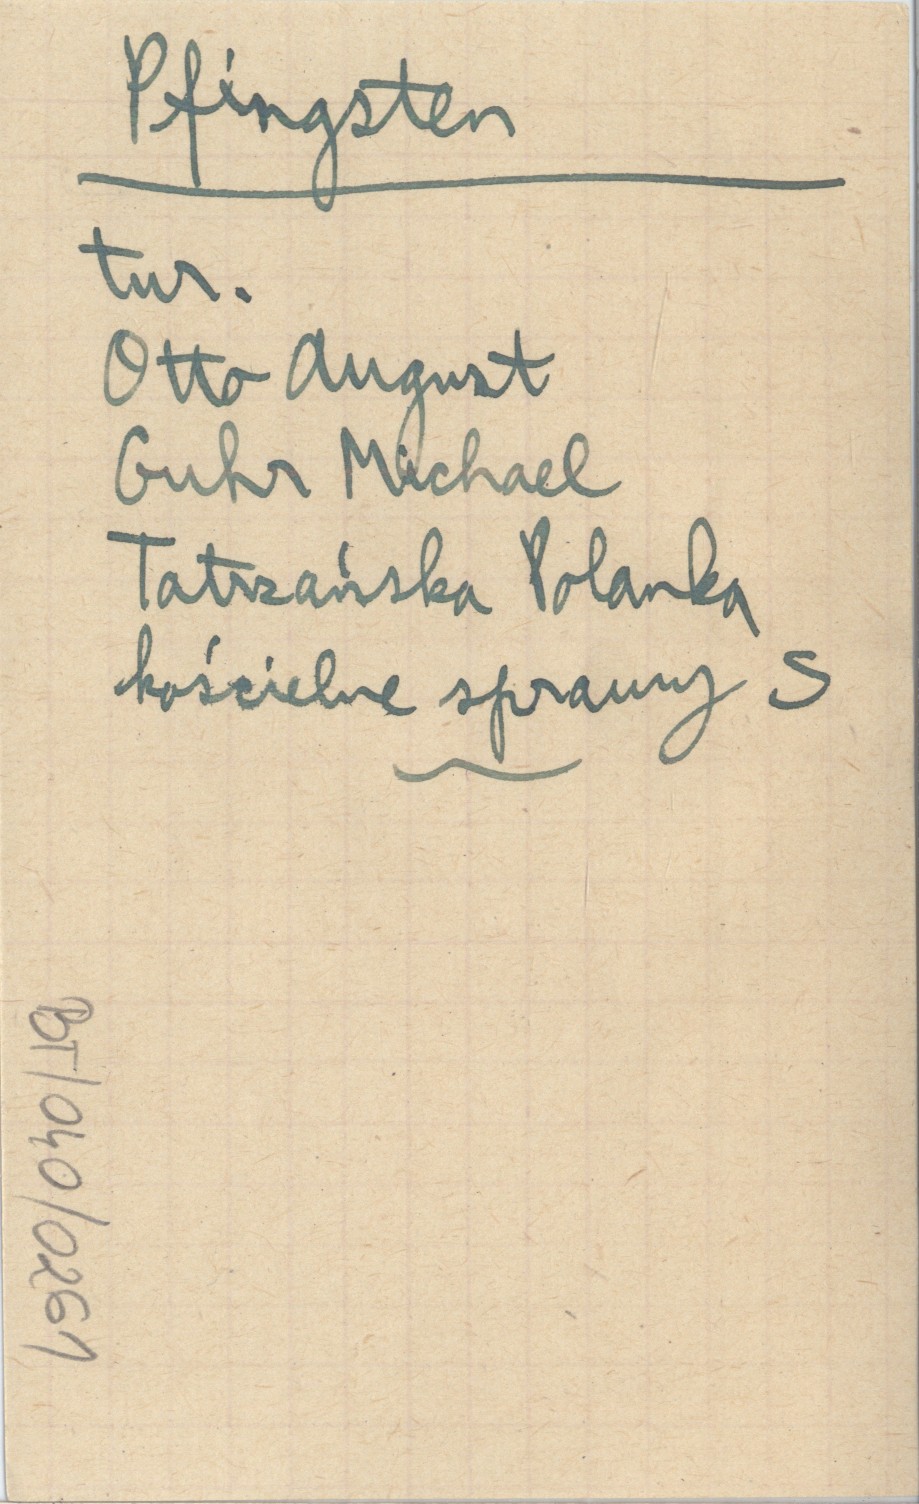 Pfingsten
tur.
Otto August
Guhr Michael
Tatrzańska Polanka
kościelne sprawy S
BT/040/0261